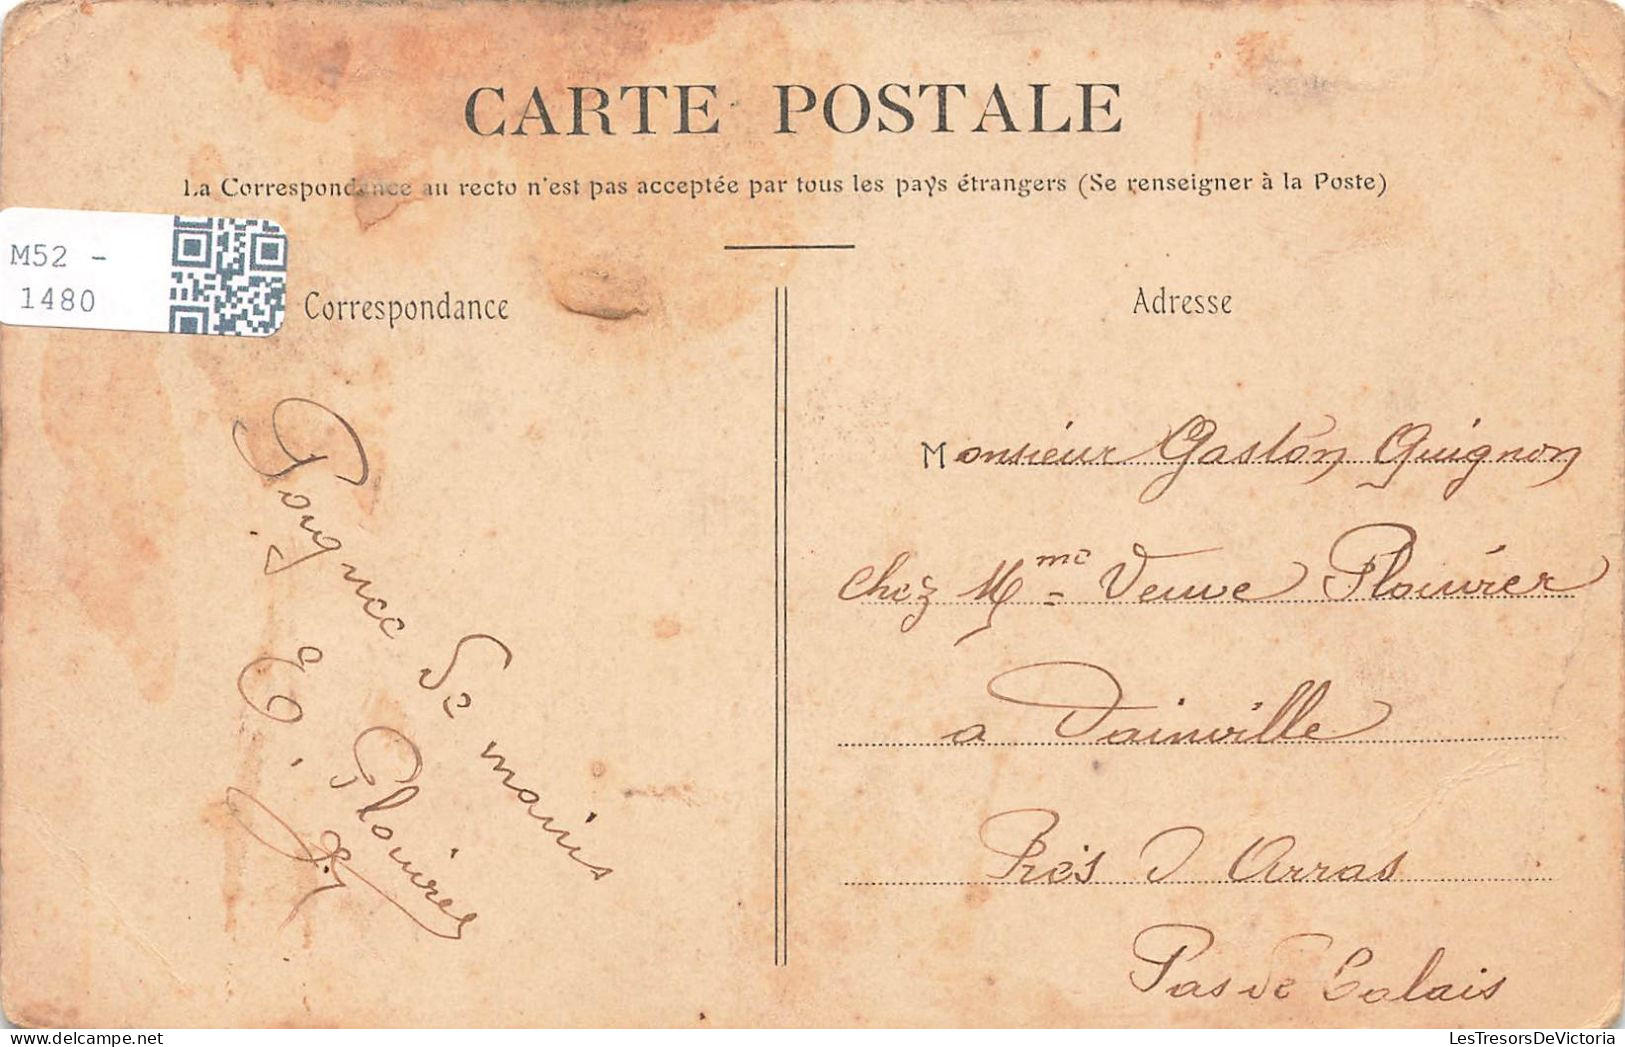 CARTE POSTALE
La Correspondance au recto n'est pas acceptée par tous les pays étrangers (Se renseigner à la Poste)
M52 -
1480
Correspondance
Poignee de mains
E. Plouvier
Adresse
Monsieur Gaston Guignon
chez Mme Veuve Plouvier
a Dainville
Près d Arras
Pas de Calais
LesTresorsDeVictoria